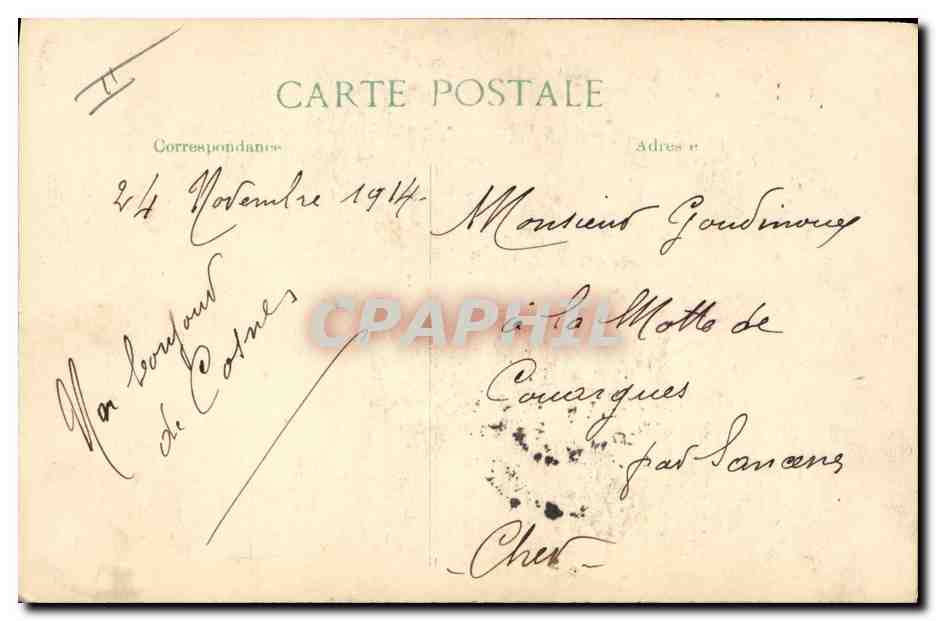 CARTE POSTALE
Correspondance
Adres e
24 Novembre 1914-
Mon bonjour
de Cosnes
Monsieur Goudinoux
à la Motte de
Couargues
par Sancerre
- Cher -
CPAPHIL